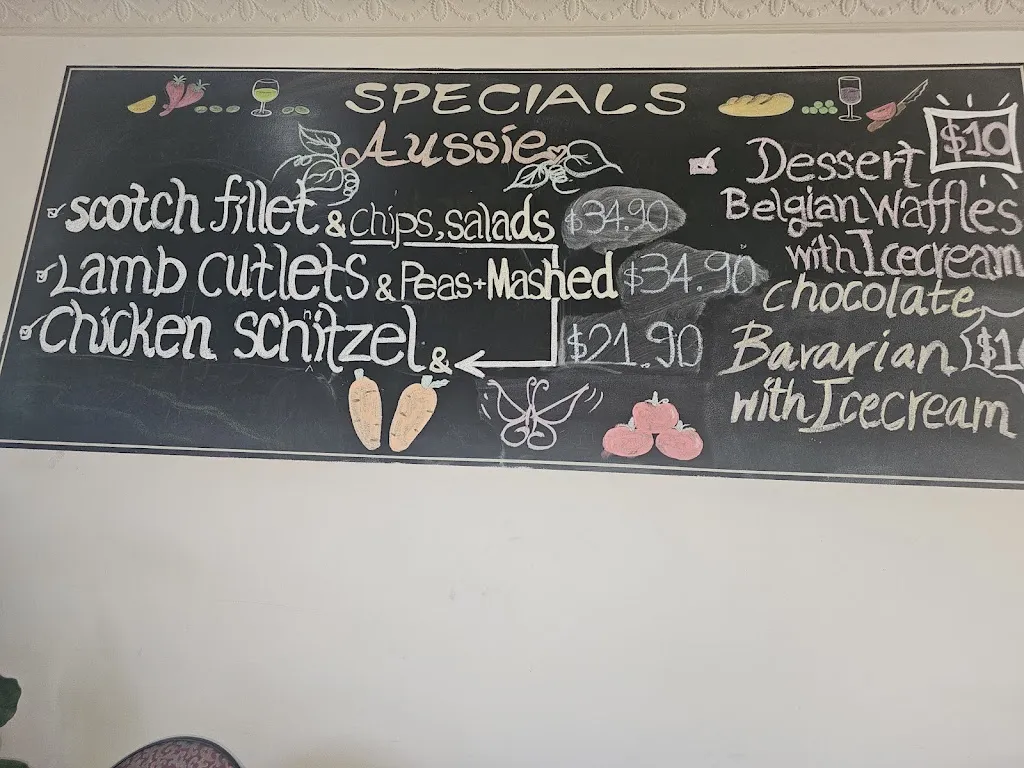 SPECIALS
Aussie
scotch fillet & chips, salads $34.90
Lamb cutlets & Peas + Mashed $34.90
chicken schnitzel & $21.90
Dessert $10
Belgian Waffles
with Icecream
chocolate
Bavarian
with Icecream